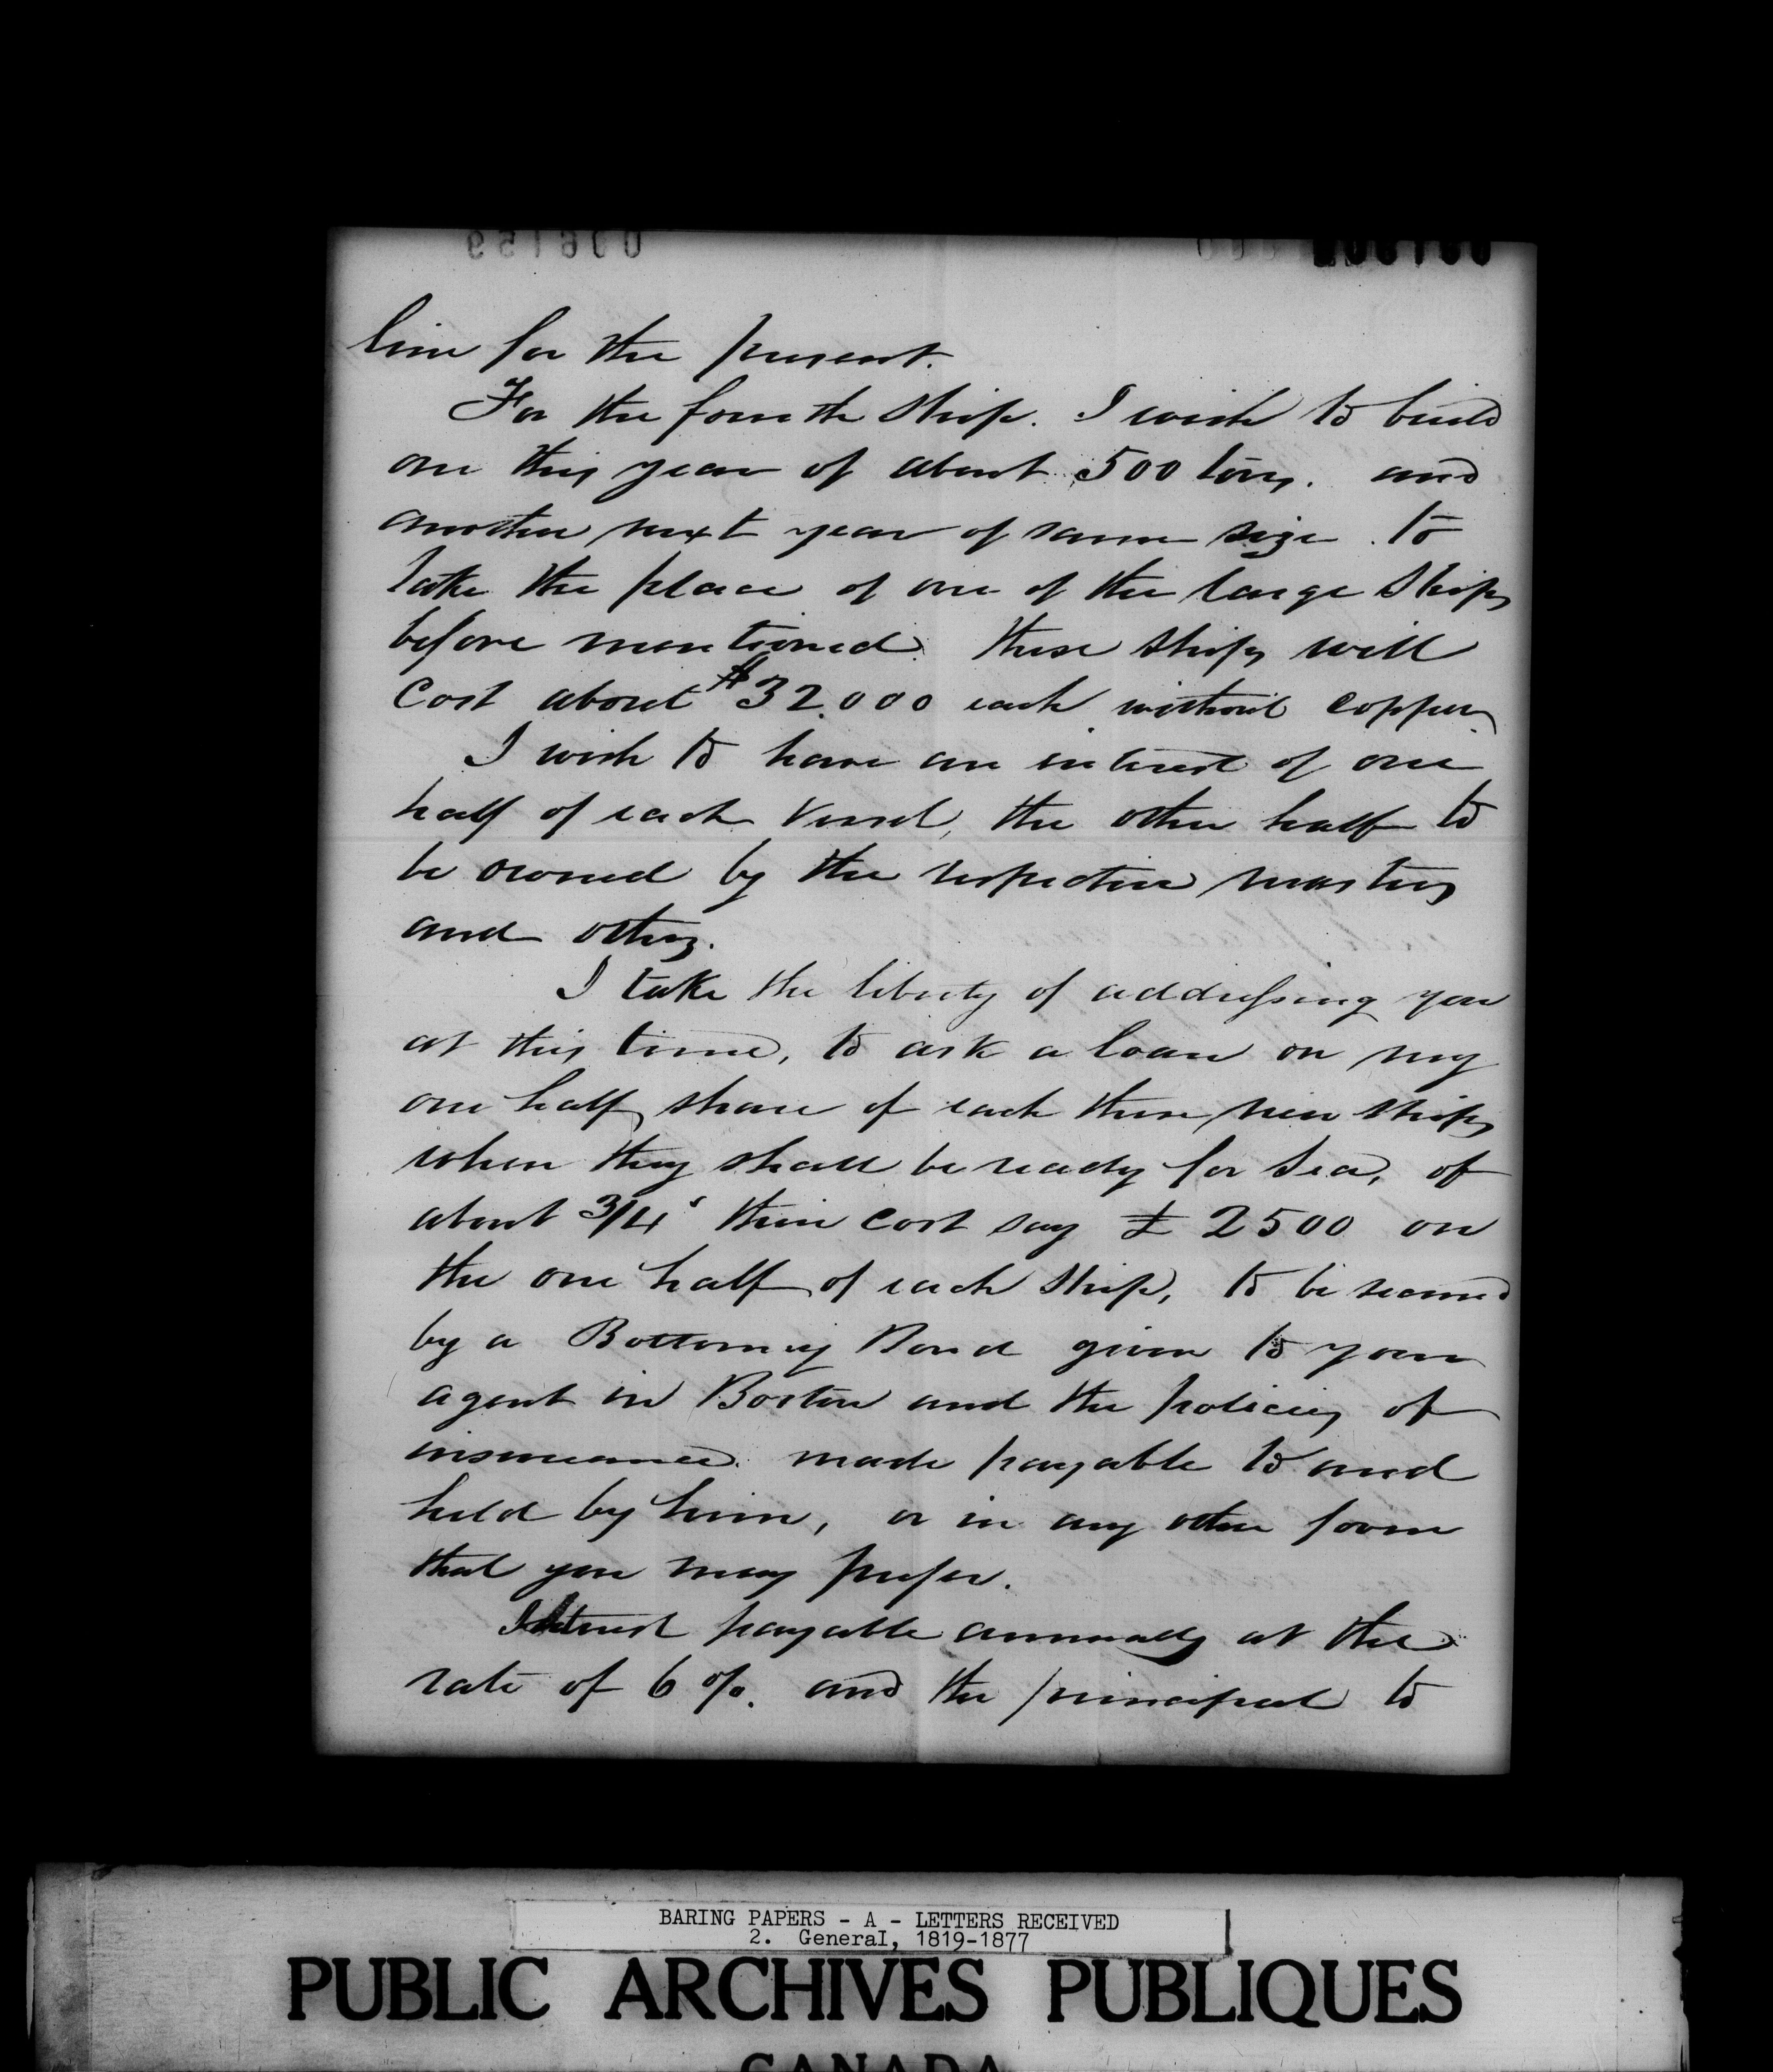 line for the present.
For the fourth ship. I wish to build
one this year of about 500 tons. and
another next year of same size. to
take the place of one of the large ships
before mentioned. these ships will
cost about $32.000 each without copper
I wish to have an interest of one
half of each vessel, the other half to
be owned by the respective masters
and others.
I take the liberty of addressing you
at this time, to ask a loan on my
one half share of each these new ships
when they shall be ready for sea, of
about 3/4s their cost say £ 2500 on
the one half of each ship, to be secured
by a Bottomry Bond given to your
agent in Boston and the policies of
insurance. made payable to and
held by him, or in any other form
that you may prefer.
Interest payable annually at the
rate of 6 %. and the principal to
BARING PAPERS - A - LETTERS RECEIVED
2. General, 1819-1877
PUBLIC ARCHIVES PUBLIQUES
CANADA